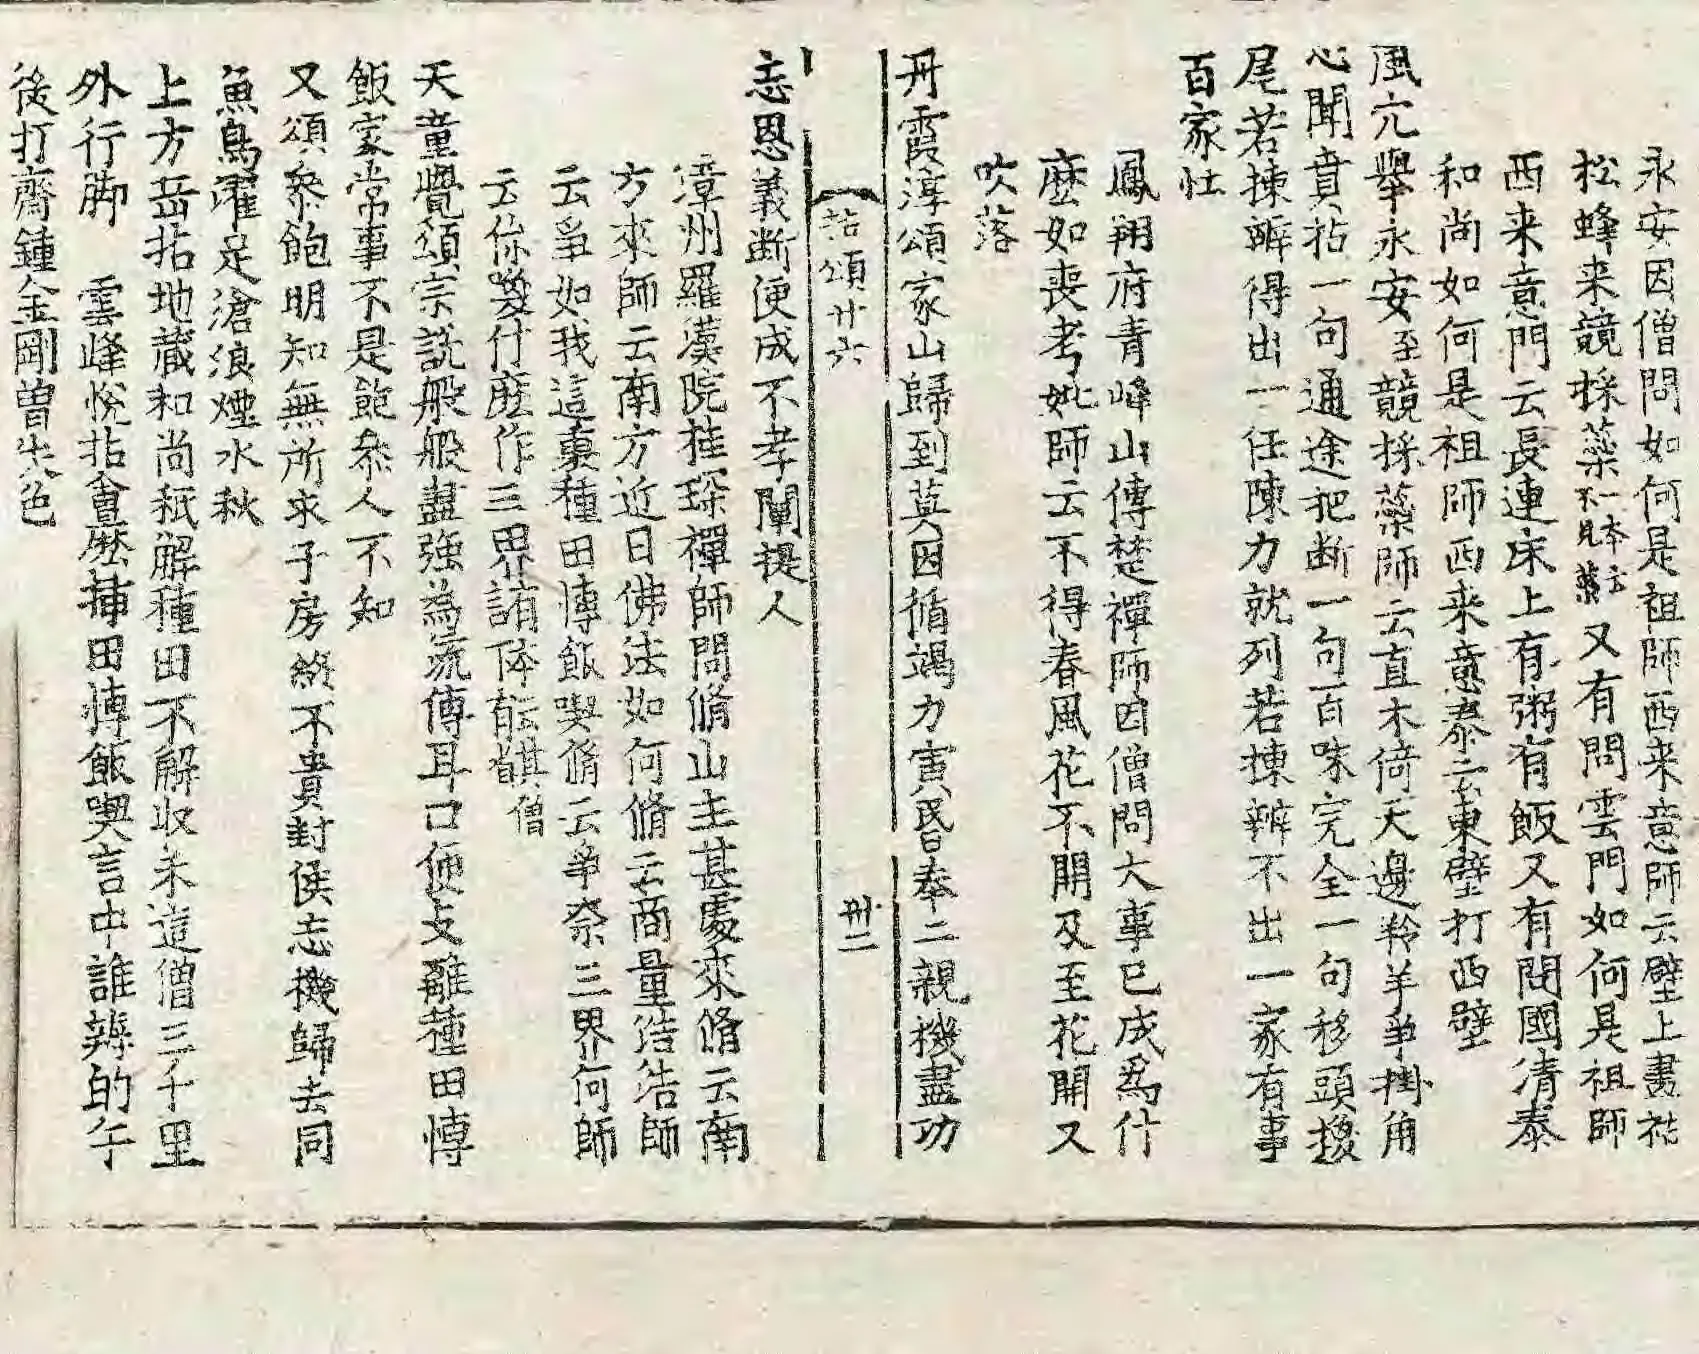 永安因僧問如何是祖師西来意師云壁上畫祜
松蜂来競採蘂一本云不見蘂又有問雲門如何是祖師
西来意門云長連床上有粥有飯又有問國清泰
和尚如何是祖師西来意泰云東壁打西壁
風穴舉永安至競採蘂師云直木倚天邊羚羊爭掛角
忽聞賁拈一句通途把断一句百味完全一句移頭換
尾若揀辨得出一任陳力就列若揀辨不出一家有事
百家忙
鳳翔府青峰山傳楚禪師因僧問大事已成爲什
麽如喪考妣師云不得春風花不開及至花開又
吹落
丹霞淳頌家山歸到莫因循竭力寅昏奉二親機盡功
拈頌廿六 卅二
忘恩義断便成不孝闡提人
漳州羅漢院桂琛禪師問脩山主甚處來脩云南
方來師云南方近日佛法如何脩云商量浩浩師
云爭如我這裏種田慱飯喫脩云爭奈三界何師
云你喚什麽作三界
天童覺頌宗說般般盡強為流傳耳口便支離種田慱
飯家常事不是飽叅人不知
又頌叅飽明知無所求子房終不貴封侯忘機歸去同
魚鳥濯足滄浪煙水秋
上方岳拈地藏和尚秖解種田不解收未這僧三千里
外行脚 雲峰悅拈會麽揷田慱飯喫言中誰辨的午
後打齋鍾金剛曽失色